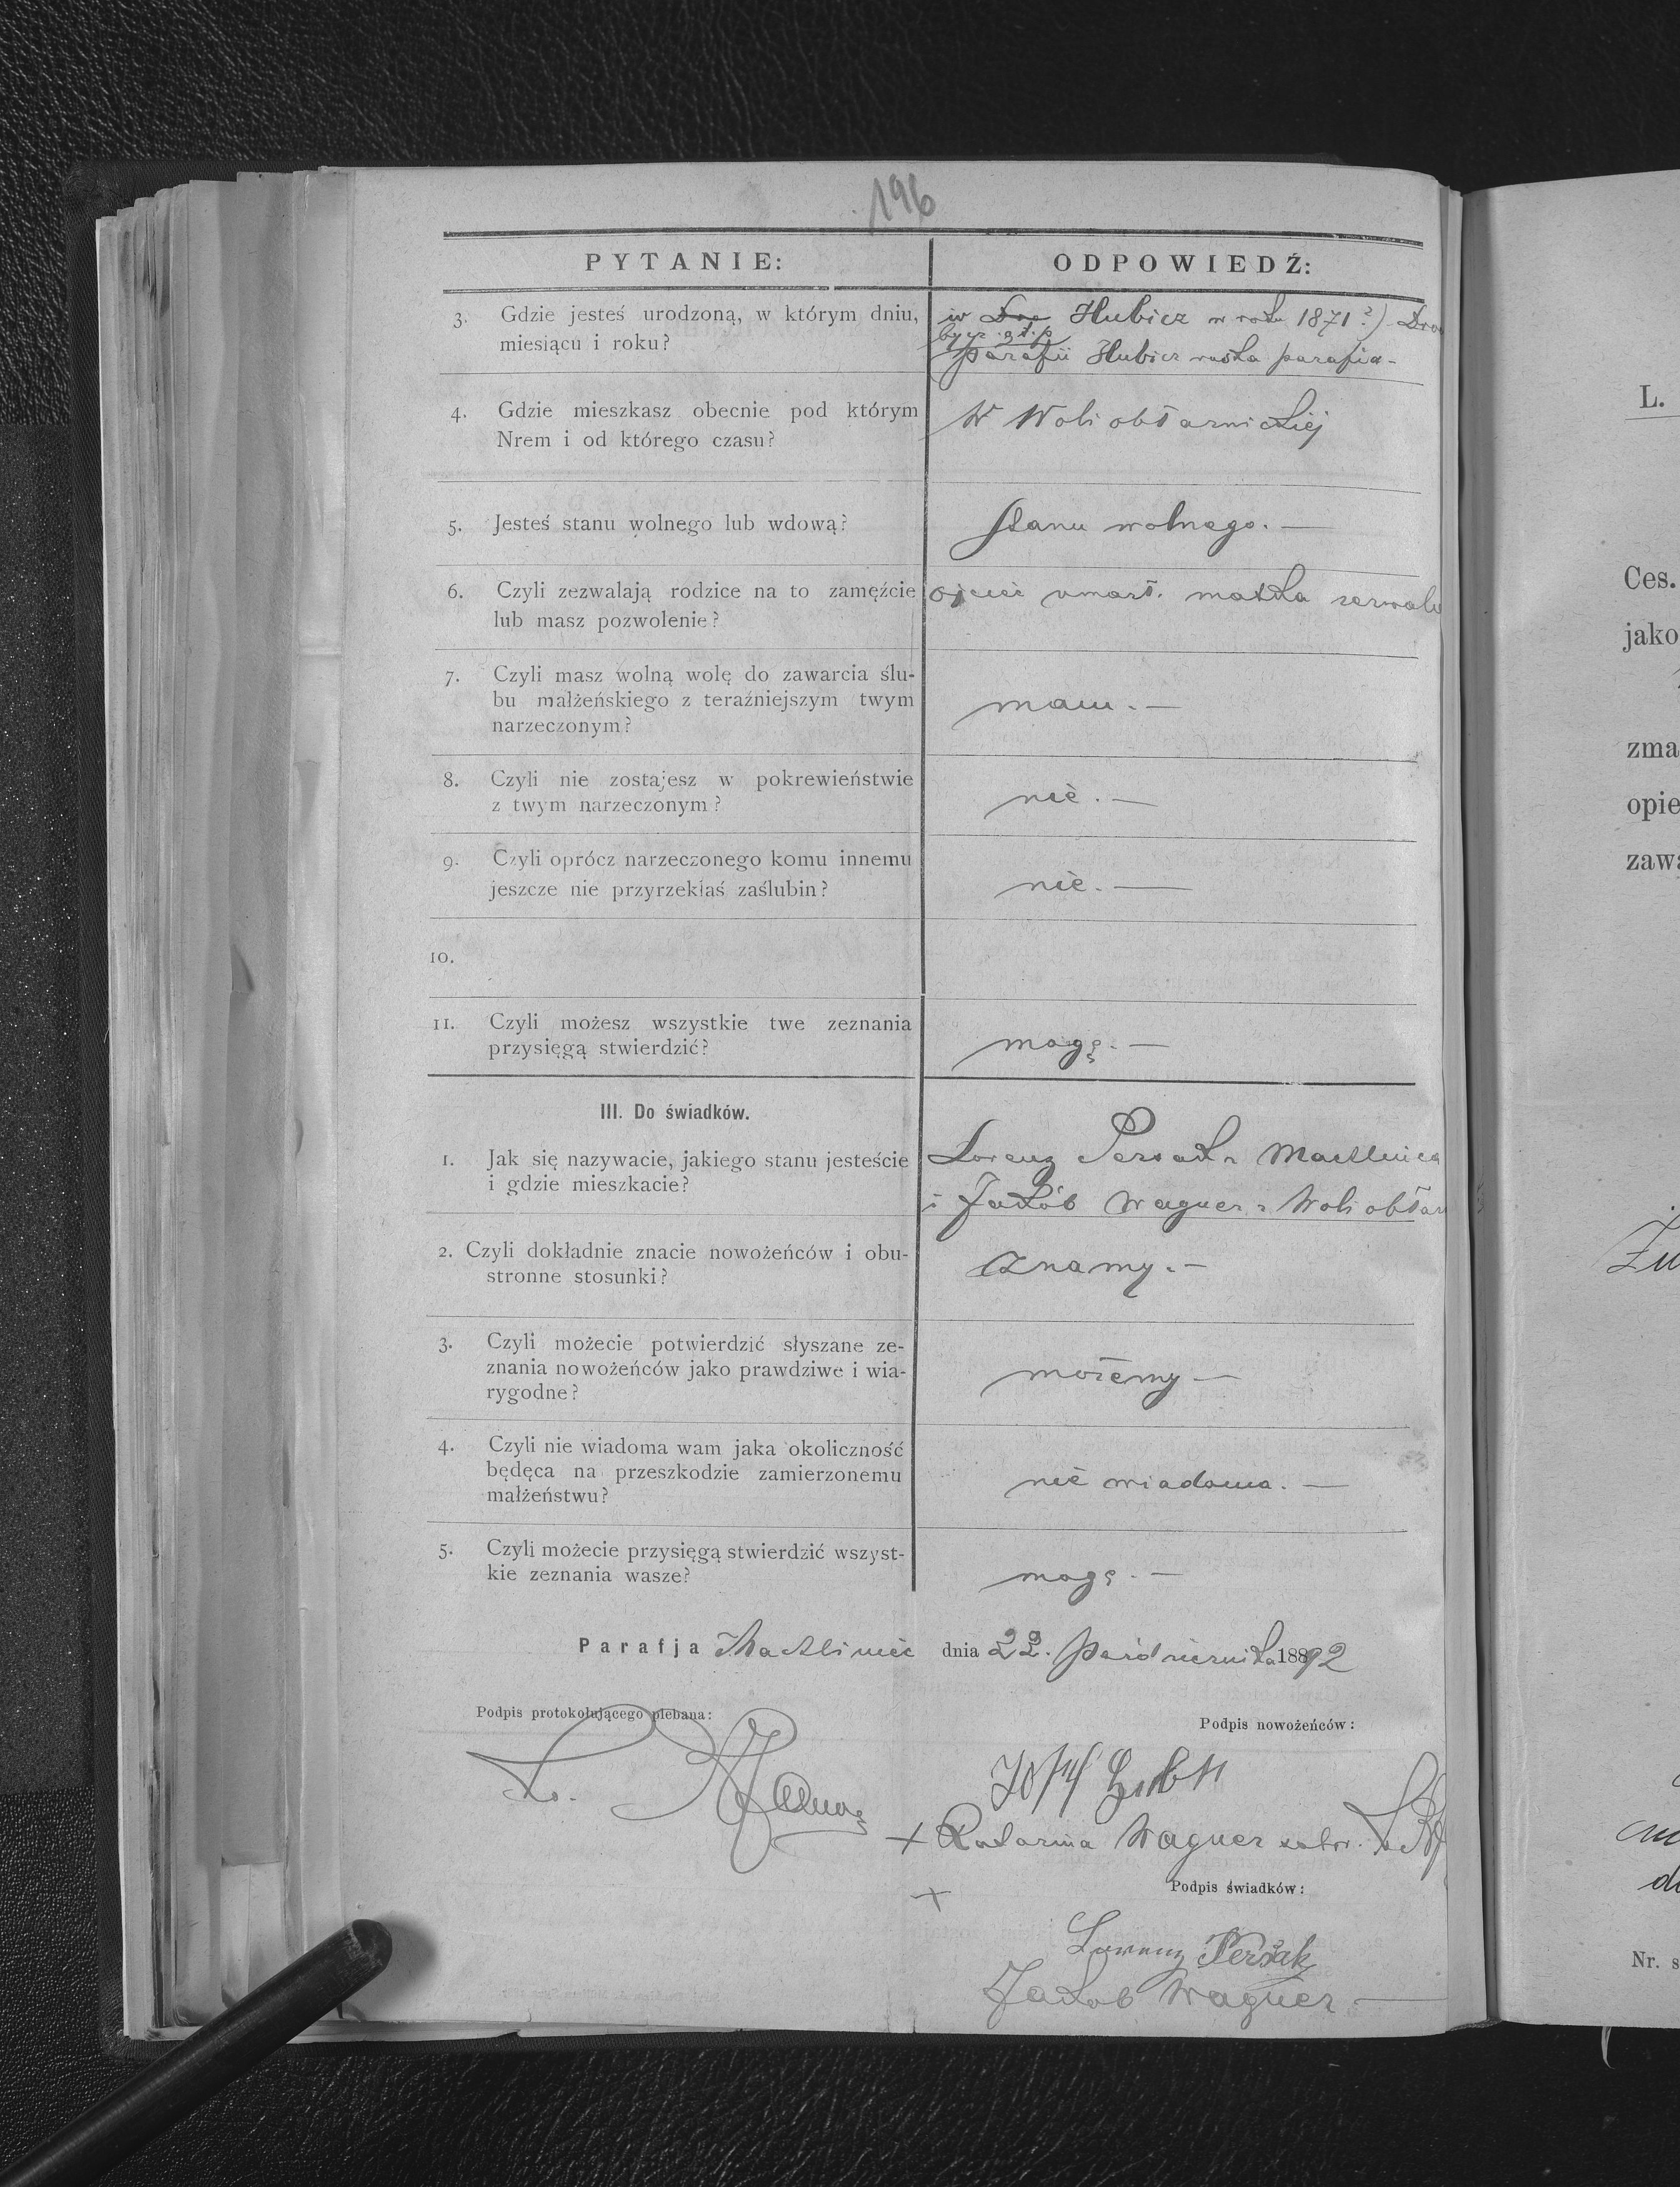 196
PYTANIE:
ODPOWIEDŹ:
3. Gdzie jesteś urodzoną, w którym dniu,
miesiącu i roku?
w Hubicz w roku 1871?)
parafii Hubicz ruska parafia-
4. Gdzie mieszkasz obecnie pod którym
Nrem i od którego czasu?
W Woli obłarnickiej
5. Jesteś stanu wolnego lub wdową?
stanu wolnego. —
6. Czyli zezwalają rodzice na to zamęźcie
lub masz pozwolenie?
ojciec umarł. matka zezwala
7. Czyli masz wolną wolę do zawarcia ślu-
bu małżeńskiego z teraźniejszym twym
narzeczonym?
mam. —
8. Czyli nie zostajesz w pokrewieństwie
z twym narzeczonym?
nie. —
9. Czyli oprócz narzeczonego komu innemu
jeszcze nie przyrzekłaś zaślubin?
nie. —
10.
11. Czyli możesz wszystkie twe zeznania
przysięgą stwierdzić?
mogę. —
III. Do świadków.
1. Jak się nazywacie, jakiego stanu jesteście
i gdzie mieszkacie?
Lorenz Persak z
i Jakób Wagner z Woli obłar
2. Czyli dokładnie znacie nowożeńców i obu-
stronne stosunki?
znamy. —
3. Czyli możecie potwierdzić słyszane ze-
znania nowożeńców jako prawdziwe i wia-
rygodne?
możemy —
4. Czyli nie wiadoma wam jaka okoliczność
będęca na przeszkodzie zamierzonemu
małżeństwu?
nie wiadoma. —
5. Czyli możecie przysięgą stwierdzić wszyst-
kie zeznania wasze?
mogę. —
Parafja Machliniec dnia 22. Października 1892
Podpis protokołującego plebana:
Podpis nowożeńców:
X.
Josef
+ Katarina Wagner
Podpis świadków:
+
Lorenz Persak
Jakob Wagner —
L.
Ces.
jako
zma
opie
zawa
Nr. s